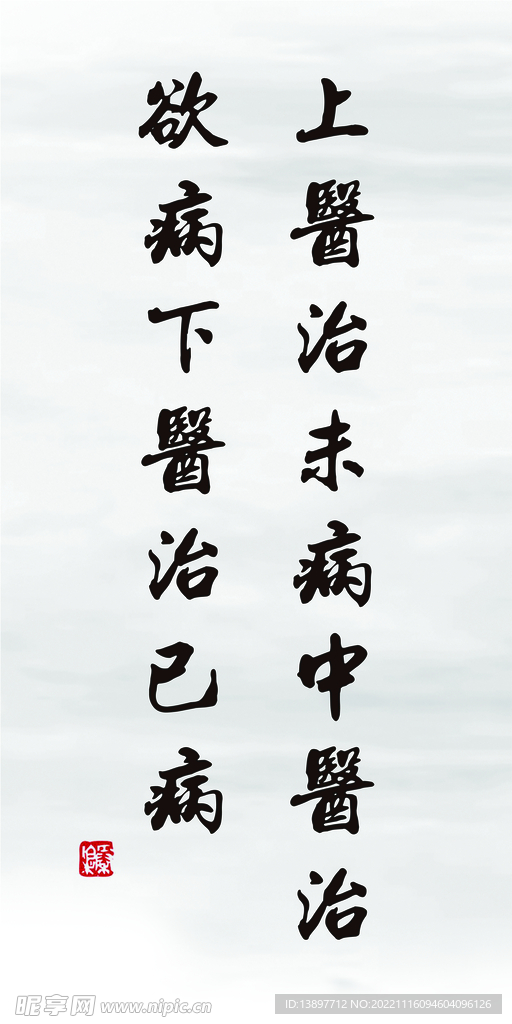 上醫治未病中醫治
欲病下醫治已病
昵享网 www.nipic.cn
ID:13897712 NO:20221116094604096126